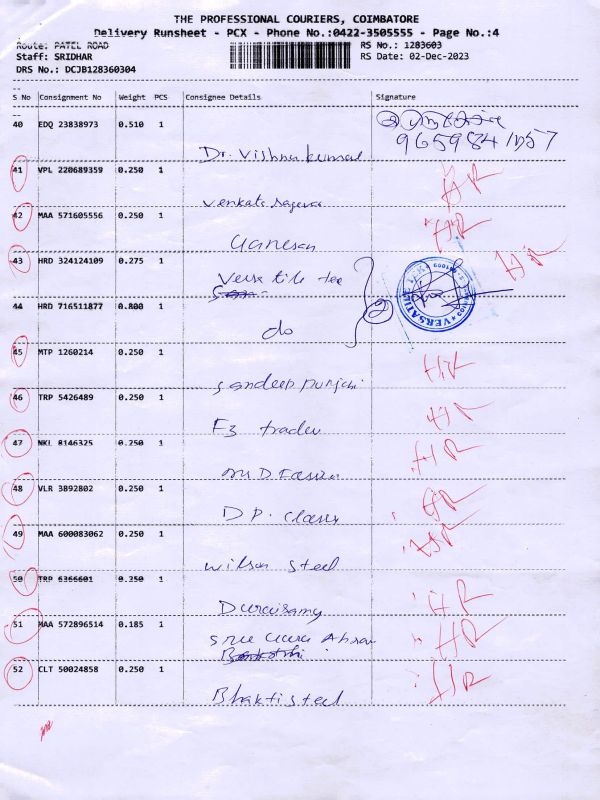 THE PROFESSIONAL COURIERS, COIMBATORE
Delivery Runsheet - PCX - Phone No.:0422-3505555 - Page No.:4
Route: PATEL ROAD
RS No.: 1283603
Staff: SRIDHAR
RS Date: 02-Dec-2023
DRS No.: DCJB128360304
S No Consignment No Weight PCS Consignee Details Signature
40 EDQ 23838973 0.510 1
Dr. Vishnu kumar
41 VPL 220689359 0.250 1
HR
42 MAA 571605556 0.250 1
HR
Ganesan
43 HRD 324124109 0.275 1
HR
VERSATILE
44 HRD 716511877 0.800 1
do
45 MTP 1260214 0.250 1
HR
Sandeep punjabi
46 TRP 5426489 0.250 1
HR
F3 trader
47 NKL 8146325 0.250 1
HR
48 VLR 3892802 0.250 1
HR
D.P.
49 MAA 600083062 0.250 1
HR
Wilson steel
50 TRP 6366601 0.350 1
HR
Duraisamy
51 MAA 572896514 0.185 1
HR
52 CLT 50024858 0.250 1
HR
Bhakti steel